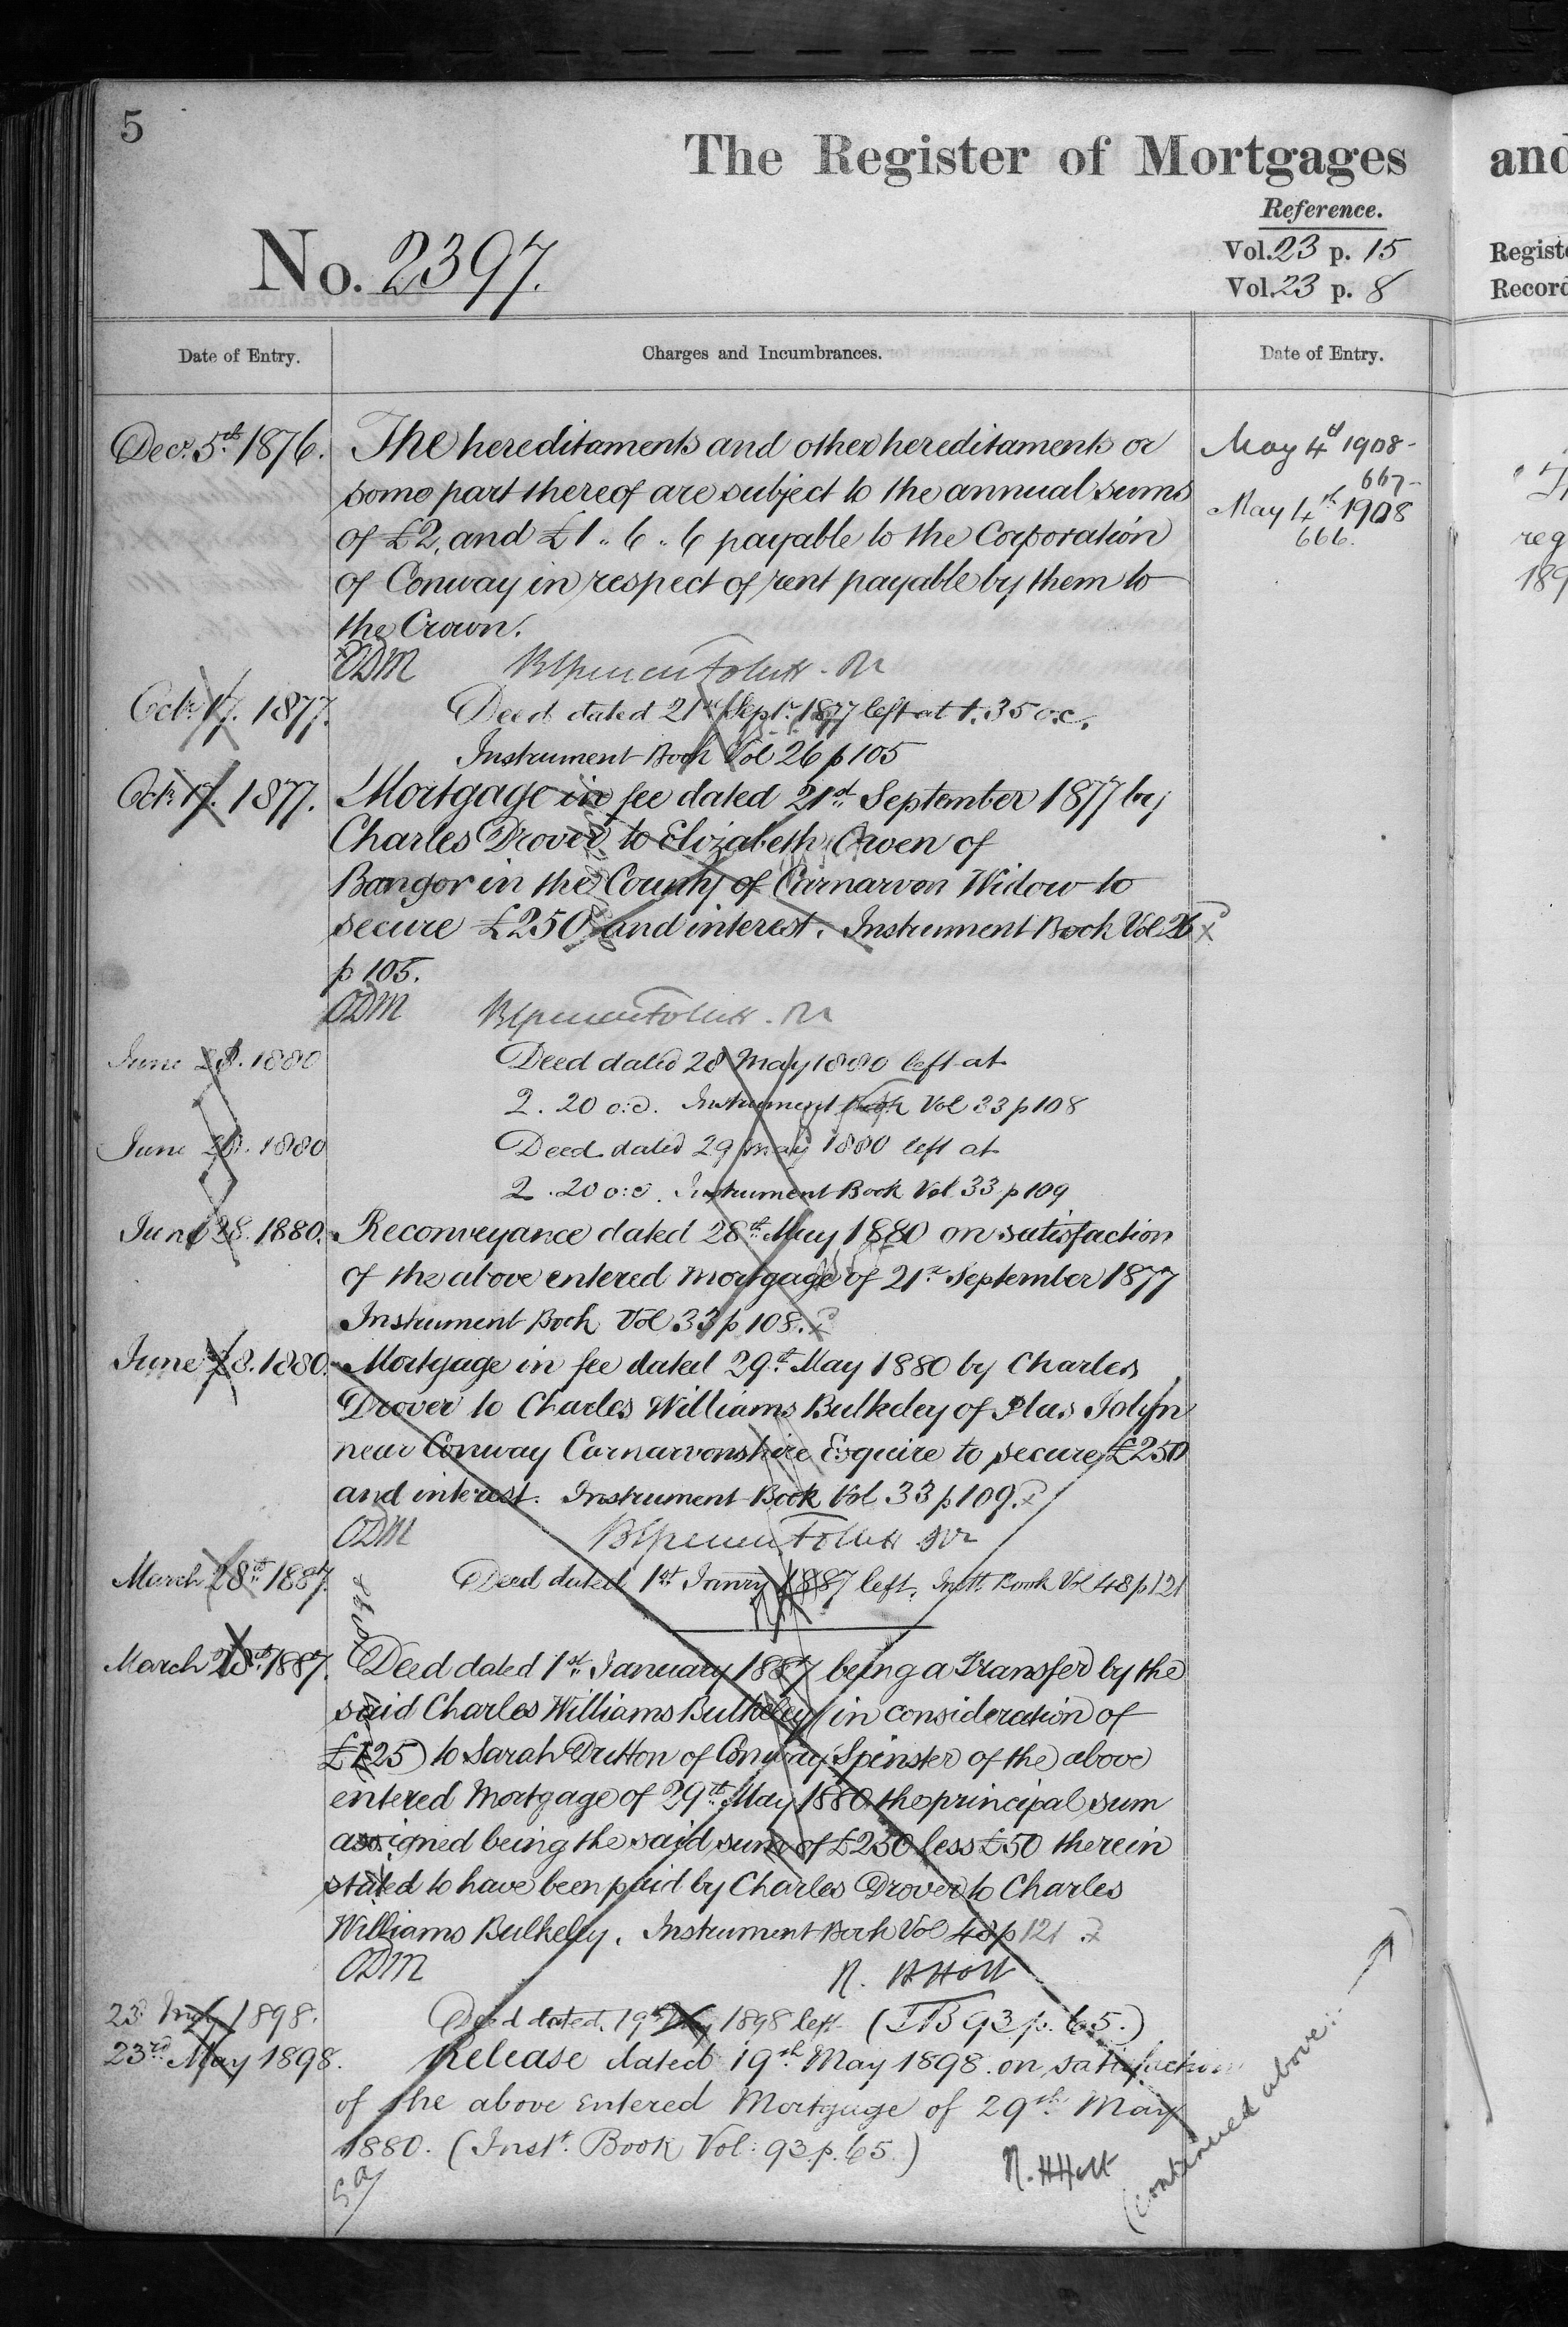 5
The Register of Mortgages
and
Reference.
Vol. 23 p. 15
Vol. 23 p. 8
Regist
Record
No. 2397.
Date of Entry.
Charges and Incumbrances.
Date of Entry.
Decr. 5th 1876. The hereditaments and other hereditaments or
some part thereof are subject to the annual sums
of £2, and £1 " 6 " 6 payable to the Corporation
of Conway in respect of rent payable by them to
the Crown.
ODM
Octr. 17. 1877. Deed dated 21st Septr. 1877 left at 1.35 o.c.
Instrument Book Vol 26 p 105
Octr. 17. 1877. Mortgage in fee dated 21st September 1877 by
Charles Drover to Elizabeth Owen of
Bangor in the County of Carnarvon Widow to
secure £250 and interest. Instrument Book Vol 26
p 105.
ODM
June 28. 1880 Deed dated 28 May 1880 left at
2.20 o.c. Instrument Book Vol 33 p 108
June 28. 1880 Deed dated 29 May 1880 left at
2.20 o.c. Instrument Book Vol 33 p 109
June 28. 1880. Reconveyance dated 28th May 1880 on satisfaction
of the above entered Mortgage of 21st September 1877
Instrument Book Vol 33 p 108.
June 28. 1880. Mortgage in fee dated 29th May 1880 by Charles
Drover to Charles Williams Bulkeley of Plas Iolyn
near Conway Carnarvonshire Esquire to secure £250
and interest. Instrument Book Vol 33 p 109.
ODM
March 28th 1887. Deed dated 1st Janry 1887 left. Instt. Book Vol 48 p 121
March 28th 1887. Deed dated 1st January 1887 being a Transfer by the
said Charles Williams Bulkeley (in consideration of
£125) to Sarah Dutton of Conway Spinster of the above
entered Mortgage of 29th May 1880 the principal sum
assigned being the said sum of £250 less £50 therein
stated to have been paid by Charles Drover to Charles
Williams Bulkeley. Instrument Book Vol 48 p 121
ODM R. H Holt
23 May 1898. Deed dated 19th May 1898 left (IB 93 p. 65.)
23rd May 1898. Release dated 19th May 1898 on satisfaction
of the above entered Mortgage of 29th May
1880. (Inst. Book Vol: 93 p. 65.)
R. H Holt
May 4th 1908-
667-
May 4th 1908
666.
reg
189
(continued above: